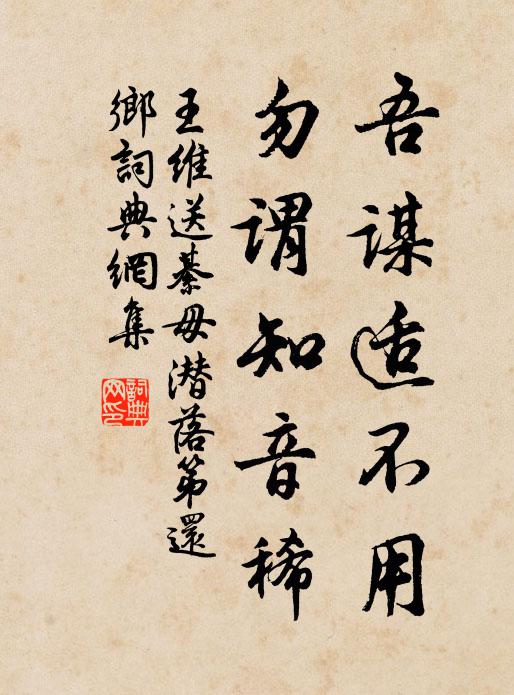 吾謀适不用
勿謂知音稀
王維送綦毋潜落第還
鄉詞典網集
詞典
网印